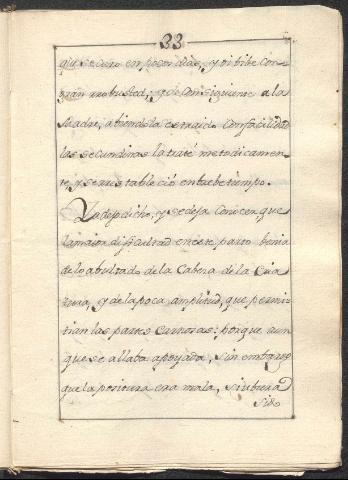 33
que se curo en pocos dias, y vi bibe con
gran rrobusted; y de consiguiente a la
Madre, abiendola extraido con facilidad
las secundinas la traté metodicamen-
te, y se rrestableció en brebe tiempo.
Yo dejo dicho, y se deja conocer, que
la maior dificultad en este parto benia
de lo abultado de la Cabeza de la Cria
tura, y de la poca amplitud, que permi-
tian las partes carnosas: porque aun
que se allaba apoyada, sin embargo
que la postura era mala, si ubiera
sido